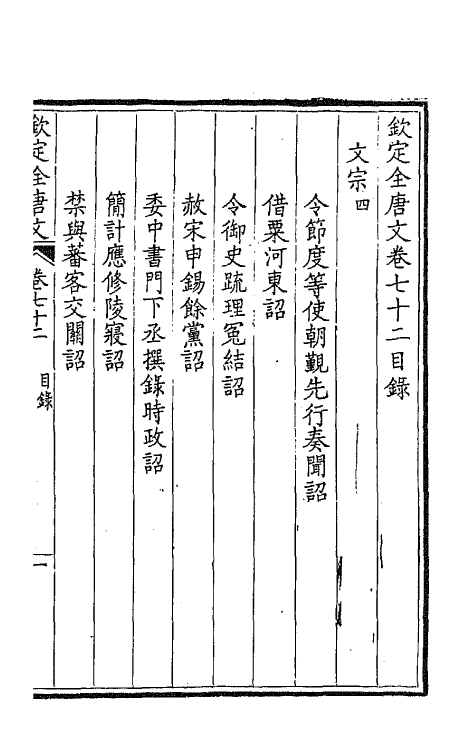 欽定全唐文卷七十二目錄
文宗四
令節度等使朝覲先行奏聞詔
借粟河東詔
令御史疏理冤結詔
赦宋申錫餘黨詔
委中書門下丞撰錄時政詔
簡計應修陵寢詔
禁與蕃客交關詔
欽定全唐文
卷七十二
目錄
一